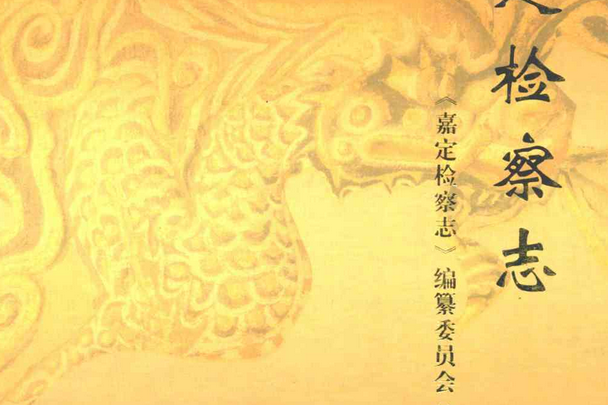 定检察志
《嘉定检察志》编纂委员会